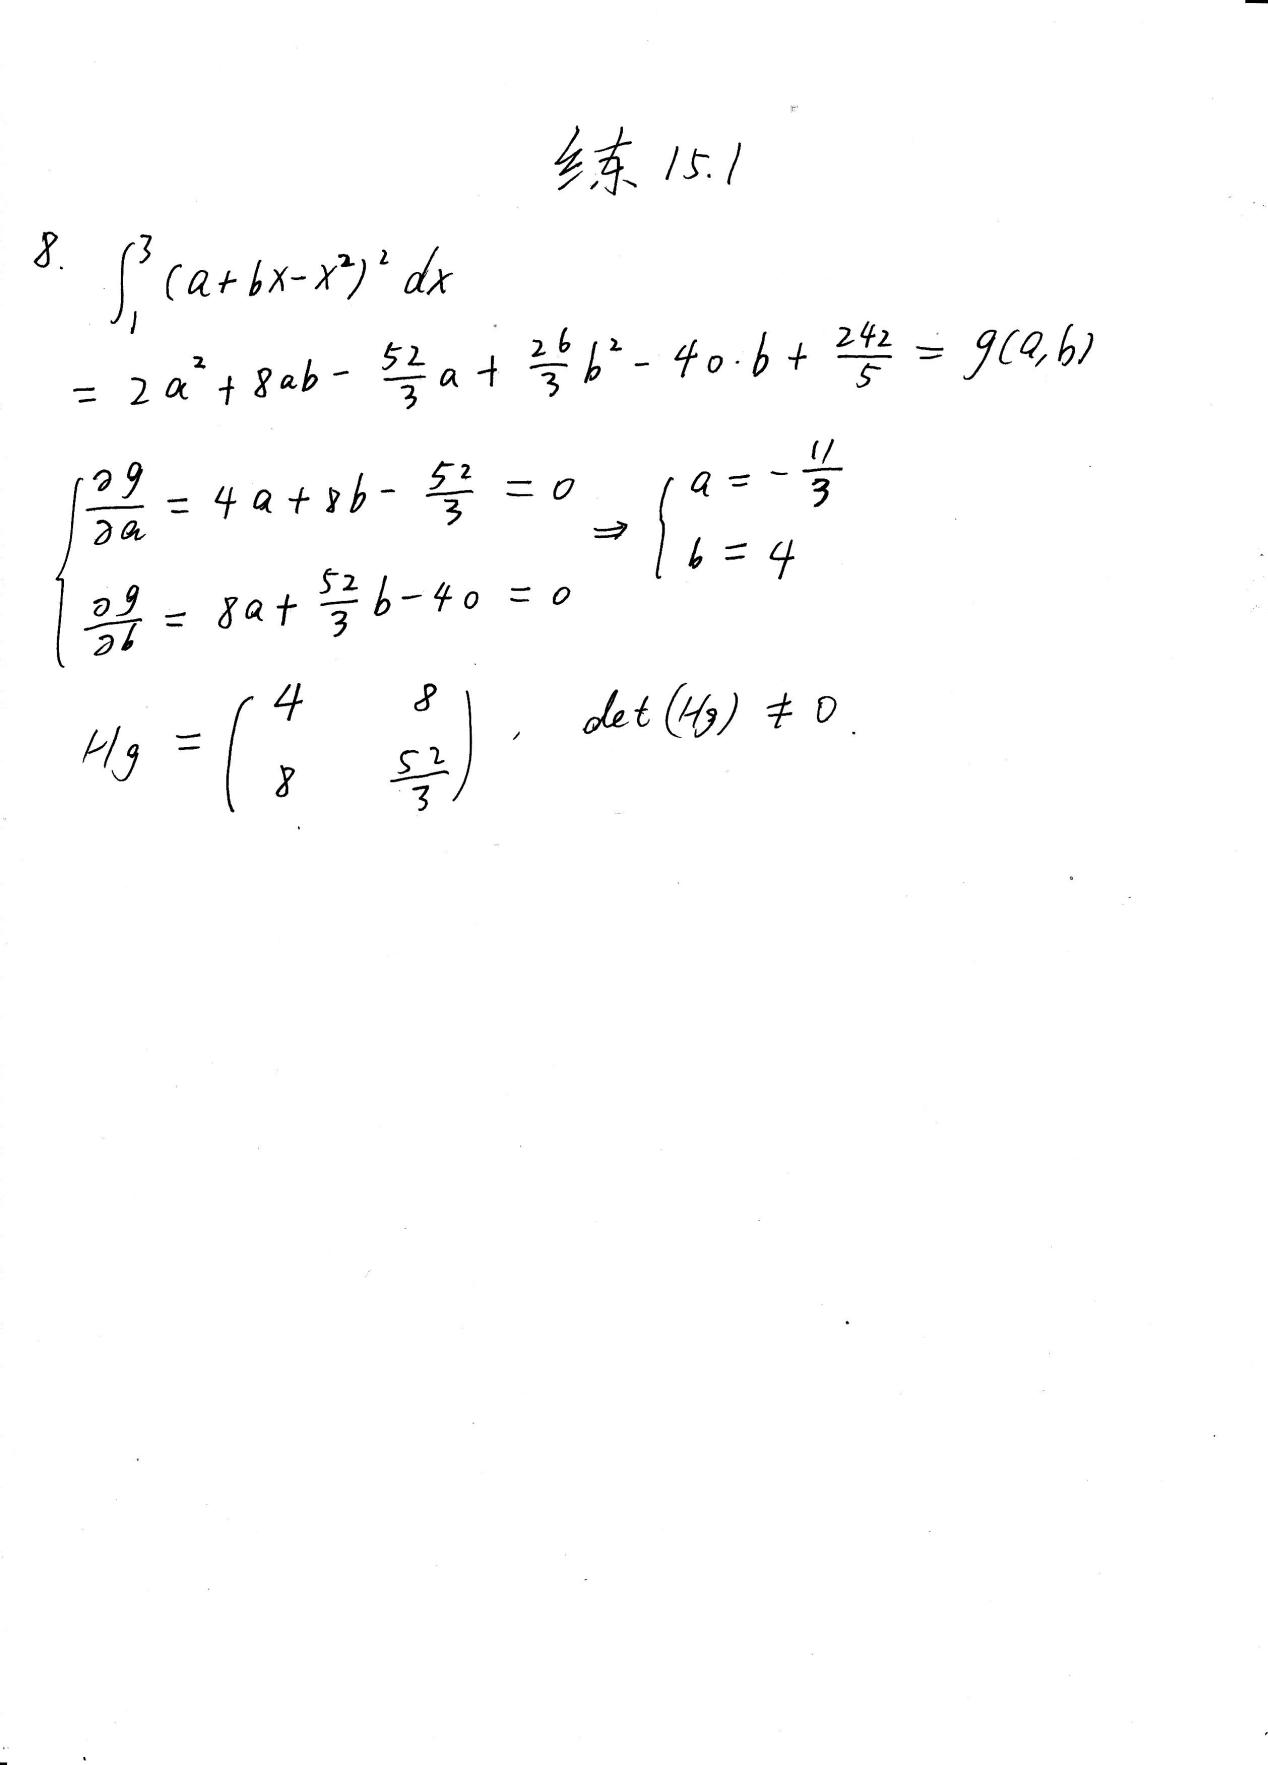 练 15.1
8. ∫₁³ (a+bx-x²)² dx
= 2a² + 8ab - 52/3 a + 26/3 b² - 40·b + 242/5 = g(a,b)
{ ∂g/∂a = 4a + 8b - 52/3 = 0 ⇒ { a = -11/3
∂g/∂b = 8a + 52/3 b - 40 = 0 b = 4
Hg = ( 4 8 ; 8 52/3 ), det(Hg) ≠ 0.